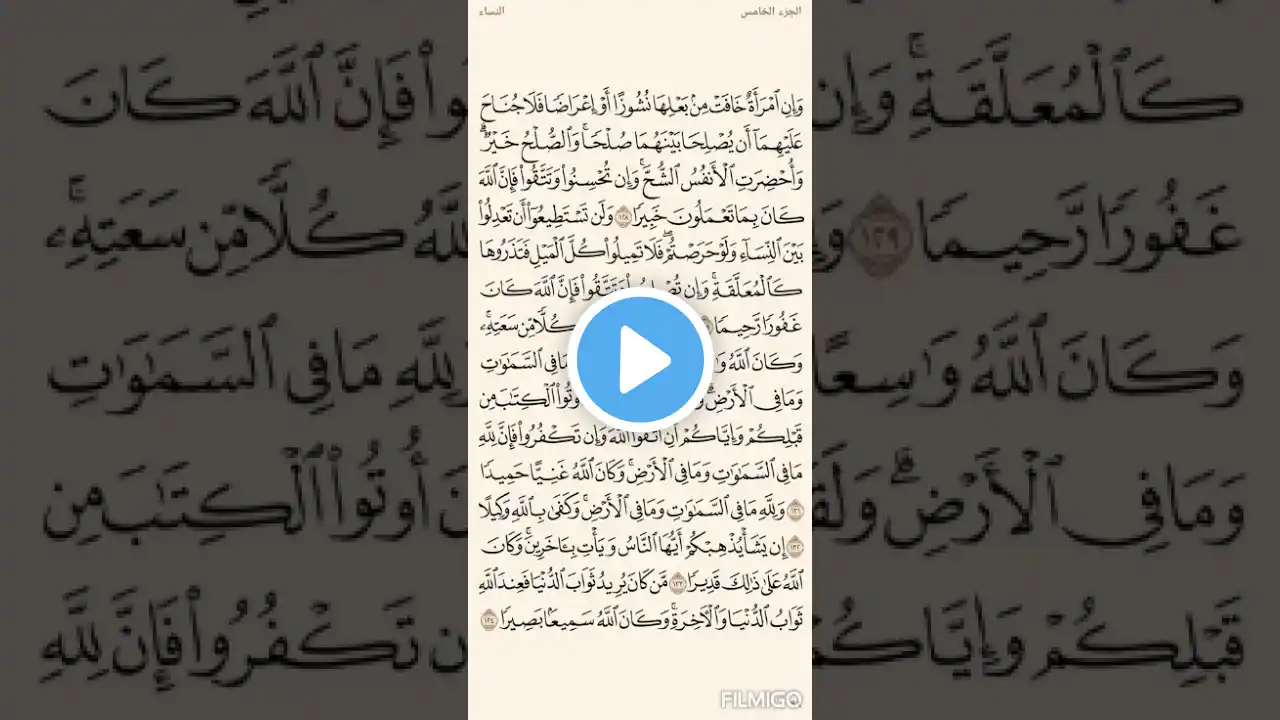 الجزء الخامس
النساء
وَإِنِ ٱمْرَأَةٌ خَافَتْ مِنۢ بَعْلِهَا نُشُوزًا أَوْ إِعْرَاضًا فَلَا جُنَاحَ
عَلَيْهِمَآ أَن يُصْلِحَا بَيْنَهُمَا صُلْحًا ۚ وَٱلصُّلْحُ خَيْرٌ ۗ
وَأُحْضِرَتِ ٱلْأَنفُسُ ٱلشُّحَّ ۚ وَإِن تُحْسِنُوا۟ وَتَتَّقُوا۟ فَإِنَّ ٱللَّهَ
كَانَ بِمَا تَعْمَلُونَ خَبِيرًا ١٢٨ وَلَن تَسْتَطِيعُوٓا۟ أَن تَعْدِلُوا۟
بَيْنَ ٱلنِّسَآءِ وَلَوْ حَرَصْتُمْ ۖ فَلَا تَمِيلُوا۟ كُلَّ ٱلْمَيْلِ فَتَذَرُوهَا
كَٱلْمُعَلَّقَةِ ۚ وَإِن وَتَتَّقُوا۟ فَإِنَّ ٱللَّهَ كَانَ
غَفُورًا رَّحِيمًا كُلًّا مِّن سَعَتِهِۦ ۚ
وَكَانَ ٱللَّهُ مَا فِى ٱلسَّمَٰوَٰتِ
وَمَا فِى ٱلْأَرْضِ ۗ أُوتُوا۟ ٱلْكِتَٰبَ مِن
قَبْلِكُمْ وَإِيَّاكُمْ أَنِ ٱتَّقُوا۟ ٱللَّهَ ۚ وَإِن تَكْفُرُوا۟ فَإِنَّ لِلَّهِ
مَا فِى ٱلسَّمَٰوَٰتِ وَمَا فِى ٱلْأَرْضِ ۚ وَكَانَ ٱللَّهُ غَنِيًّا حَمِيدًا
١٣١ وَلِلَّهِ مَا فِى ٱلسَّمَٰوَٰتِ وَمَا فِى ٱلْأَرْضِ ۚ وَكَفَىٰ بِٱللَّهِ وَكِيلًا
١٣٢ إِن يَشَأْ يُذْهِبْكُمْ أَيُّهَا ٱلنَّاسُ وَيَأْتِ بِـَٔاخَرِينَ ۚ وَكَانَ
ٱللَّهُ عَلَىٰ ذَٰلِكَ قَدِيرًا ١٣٣ مَّن كَانَ يُرِيدُ ثَوَابَ ٱلدُّنْيَا فَعِندَ ٱللَّهِ
ثَوَابُ ٱلدُّنْيَا وَٱلْـَٔاخِرَةِ ۚ وَكَانَ ٱللَّهُ سَمِيعًۢا بَصِيرًا ١٣٤
FILMIGO